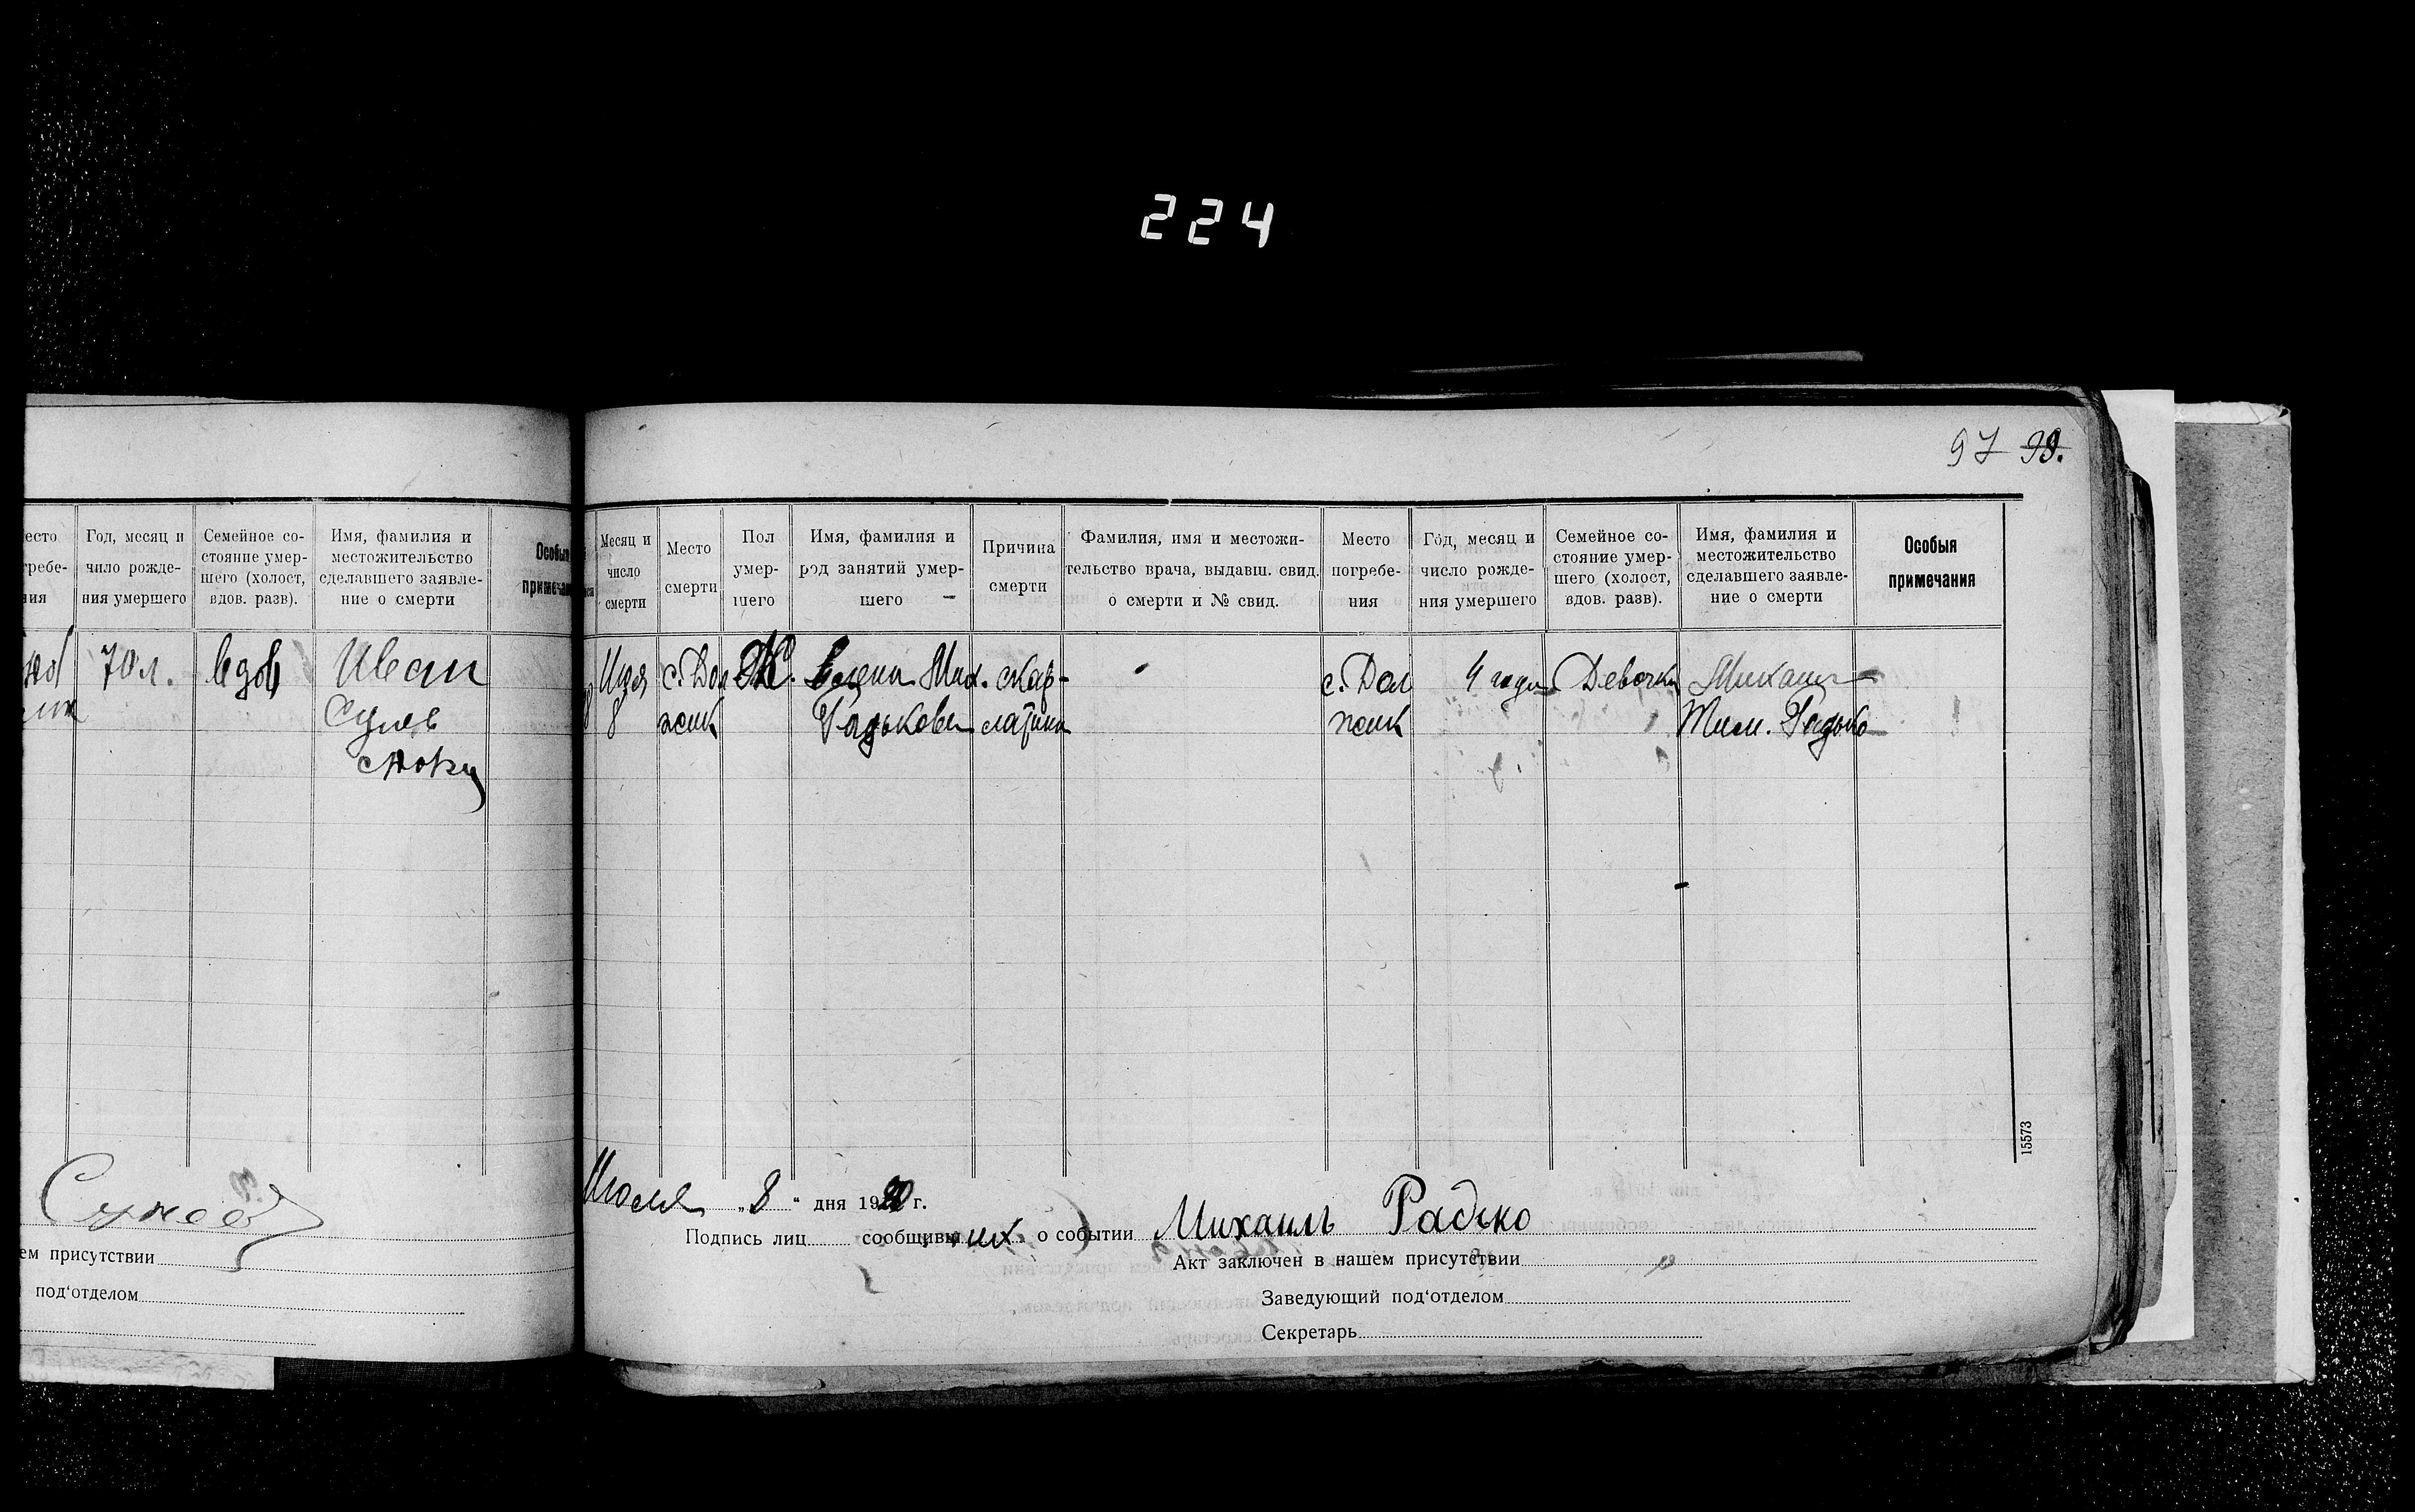 224
97 99.
есто
гребе-
ния
Год, месяц и
число рожде-
ния умершего
Семейное со-
стояние умер-
шего (холост,
вдов. разв).
Имя, фамилия и
местожительство
сделавшего заявле-
ние о смерти
Особыя
примечан
70 л.
вдов
Иван
ем присутствии
под‘отделом
Месяц и
число
смерти
Место
смерти
Пол
умер-
шего
Имя, фамилия и
род занятий умер-
шего
Причина
смерти
Фамилия, имя и местожи-
тельство врача, выдавш. свид.
о смерти и № свид.
Место
погребе-
ния
Год, месяц и
число рожде-
ния умершего
Семейное со-
стояние умер-
шего (холост,
вдов. разв).
Имя, фамилия и
местожительство
сделавшего заявле-
ние о смерти
Особыя
примечания
Июля
8
с. Дол
жик
Ж.
Елена Мих.
Радькова
скар-
латина
с. Дол
жик
4 года
Девочка
Михаил
Тим. Радько
15573
Июля „8“ дня 1920 г.
Подпись лиц сообщивших о событии Михаилъ Радько
Акт заключен в нашем присутствии
Заведующий под‘отделом
Секретарь